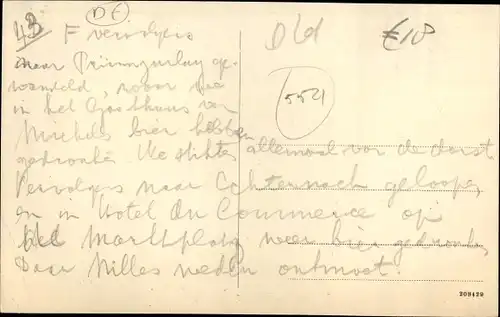 43 DE
F vervolgens Dld €18
naar Prümzurlay ge-
wandeld, waar we 554
in het Gasthaus van
Michels bier hebben
gedronken. We stikten allemaal van de dorst
Vervolgens naar Echternach geloopen,
en in Hotel du Commerce op
het Marktplatz weer bier gedronken,
Daar Milles neden ontmoet.
209429